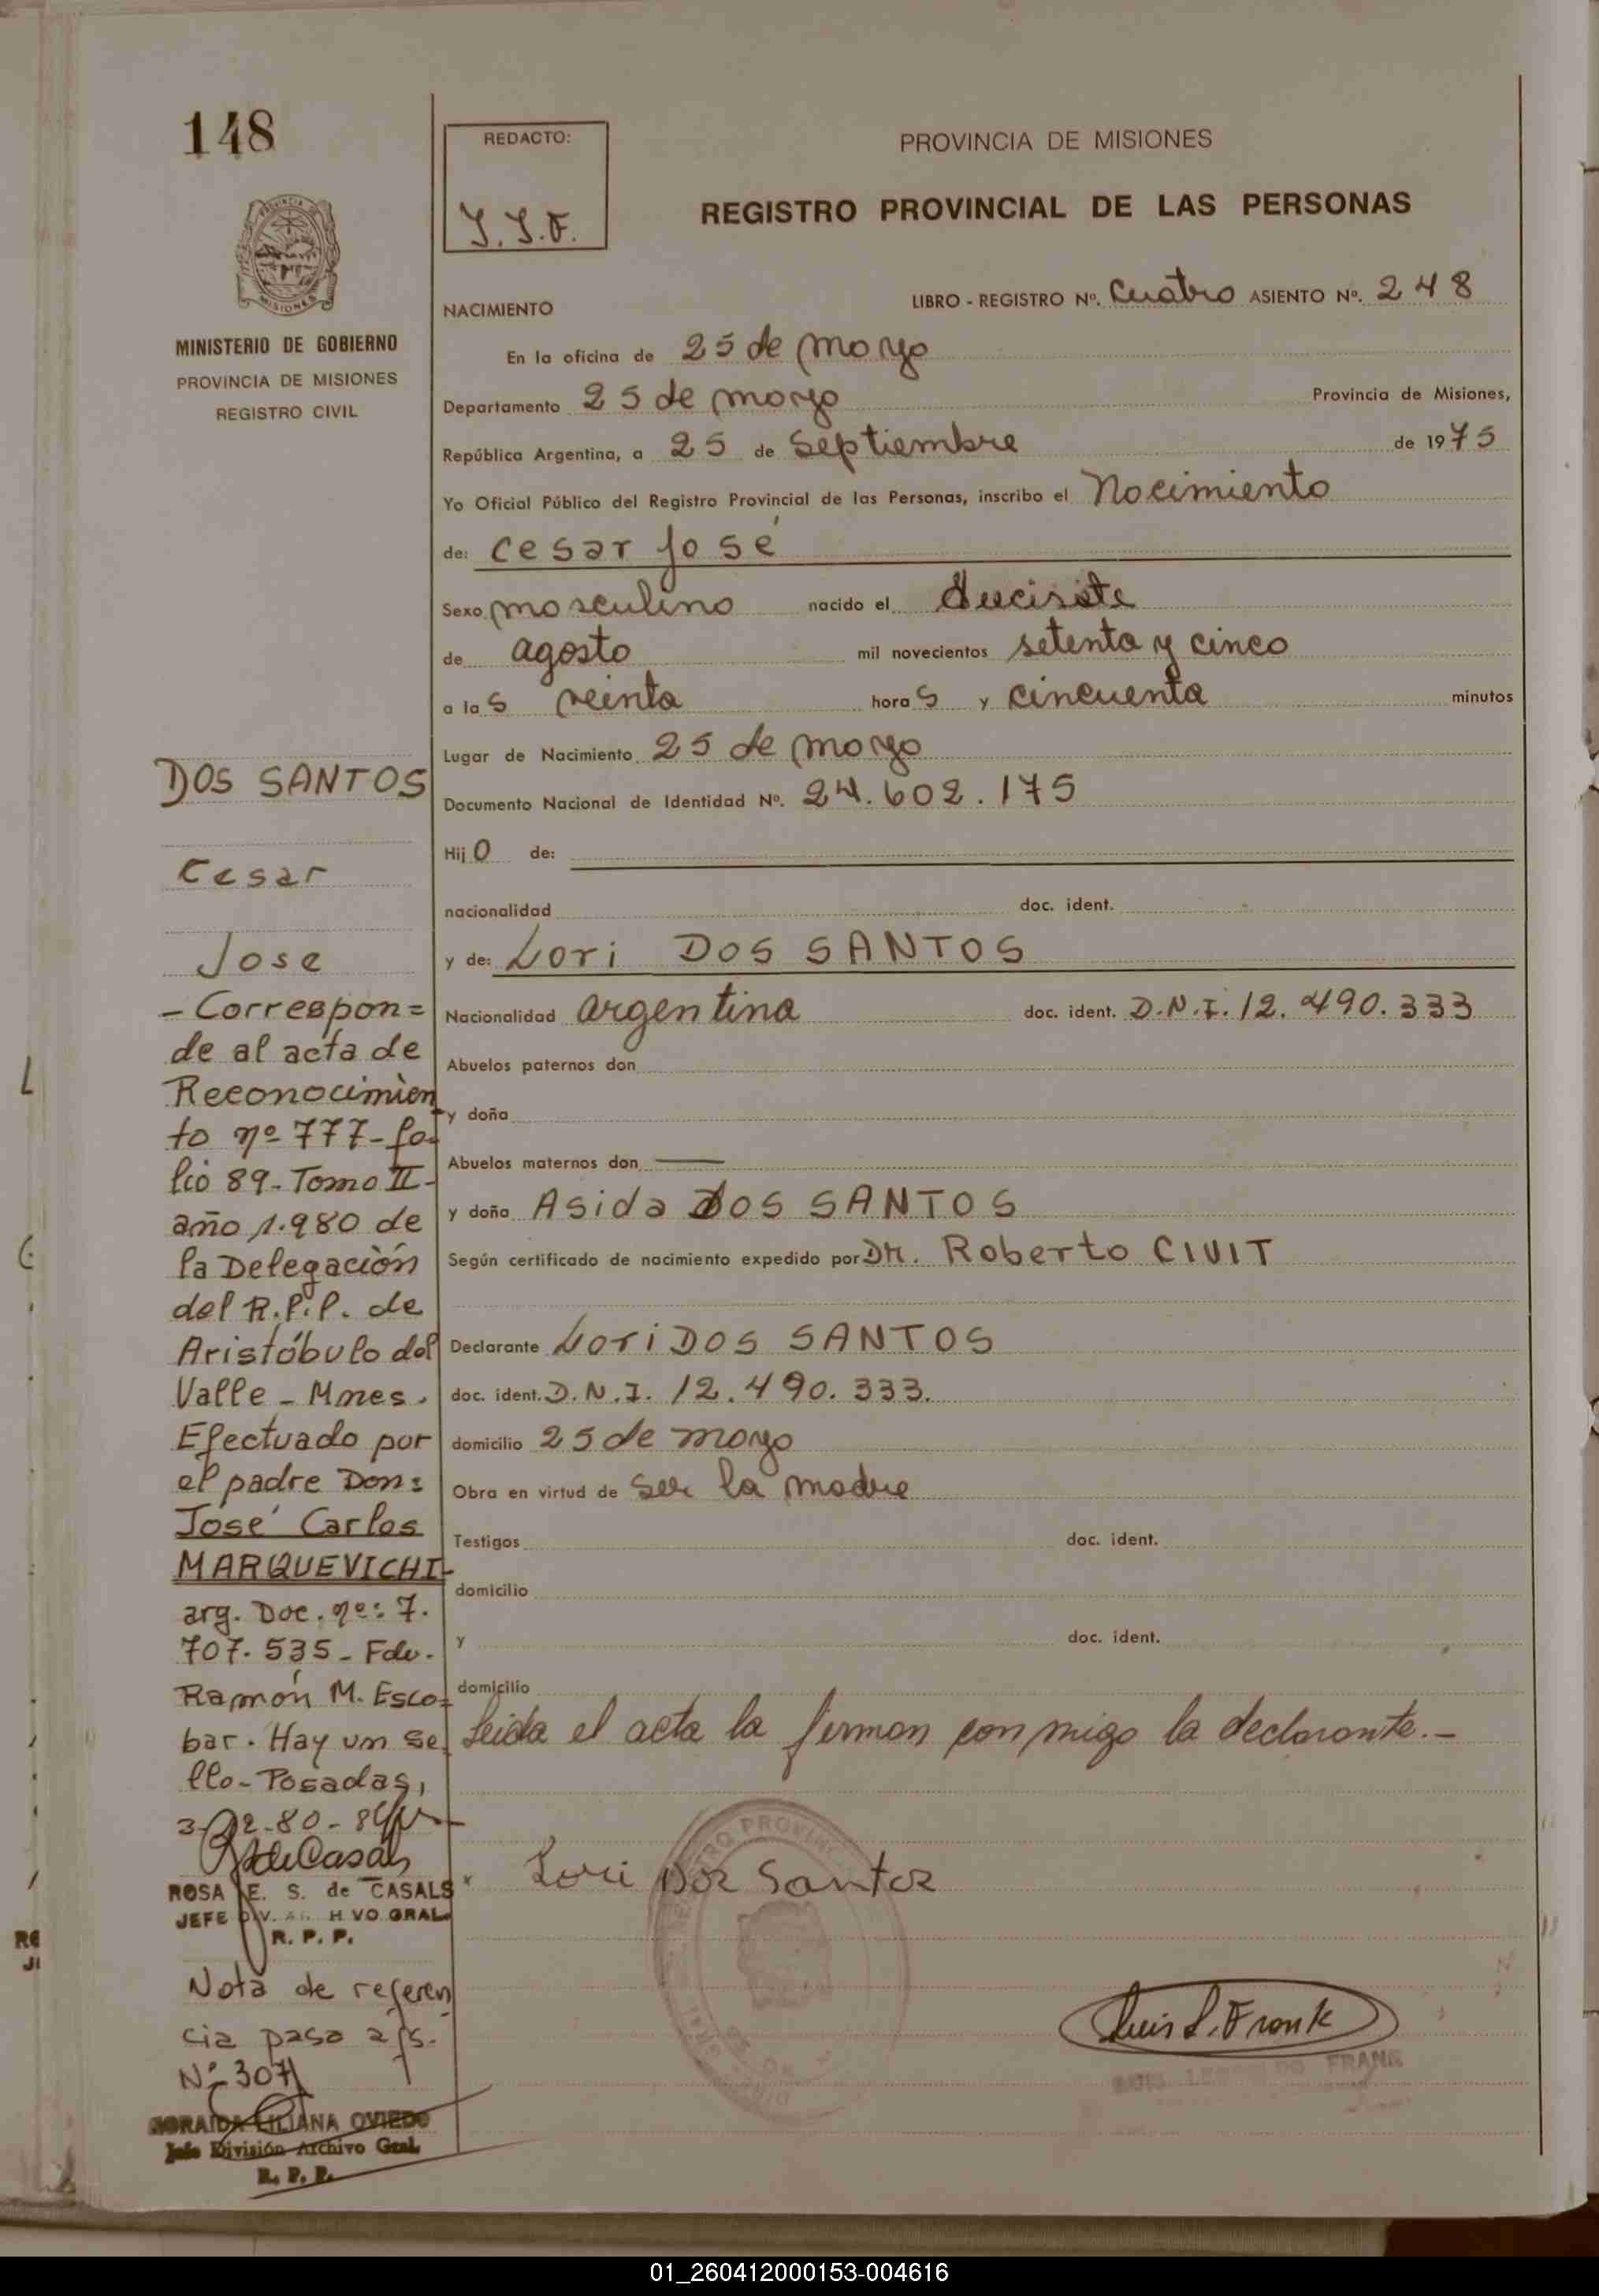 148
REDACTO:
J.J.F.
PROVINCIA DE MISIONES
REGISTRO PROVINCIAL DE LAS PERSONAS
MINISTERIO DE GOBIERNO
PROVINCIA DE MISIONES
REGISTRO CIVIL
NACIMIENTO
LIBRO - REGISTRO Nº. Cuatro ASIENTO Nº. 248
En la oficina de 25 de mayo
Departamento 25 de mayo Provincia de Misiones,
República Argentina, a 25 de Septiembre de 1975
Yo Oficial Público del Registro Provincial de las Personas, inscribo el Nacimiento
de: Cesar José
Sexo masculino nacido el diecisiete
de agosto mil novecientos setenta y cinco
a las veinte horas y cincuenta minutos
Lugar de Nacimiento 25 de mayo
Documento Nacional de Identidad Nº. 24.602.175
Hijo de:
nacionalidad doc. ident.
y de: Lori DOS SANTOS
Nacionalidad argentina doc. ident. D.N.I. 12.490.333
Abuelos paternos don
y doña
Abuelos maternos don —
y doña Asida DOS SANTOS
Según certificado de nacimiento expedido por Dr. Roberto CIVIT
Declarante Lori DOS SANTOS
doc. ident. D.N.I. 12.490.333.
domicilio 25 de mayo
Obra en virtud de ser la madre
Testigos doc. ident.
domicilio
y doc. ident.
domicilio
Leida el acta la firman conmigo la declarante.-
Lori Dos Santos
Luis L. Frank
FRANK
DOS SANTOS
Cesar
Jose
- Correspon=
de al acta de
Reconocimien
to nº 777-fo-
lio 89-Tomo II-
año 1.980 de
la Delegación
del R.P.P. de
Aristóbulo del
Valle - Mnes.
Efectuado por
el padre Don:
José Carlos
MARQUEVICHI-
arg. Doc. nº: 7.
707.535 - Fdo.
Ramón M. Esco=
bar. Hay un se
llo-Posadas,
ROSA E. S. de CASALS
JEFE DIV. ARCHIVO GRAL
R. P. P.
Nota de referen
cia pasa a fs.
Nº 307
SORAIDA LILIANA OVIEDO
Jefe División Archivo Gral.
R. P. P.
01_260412000153-004616